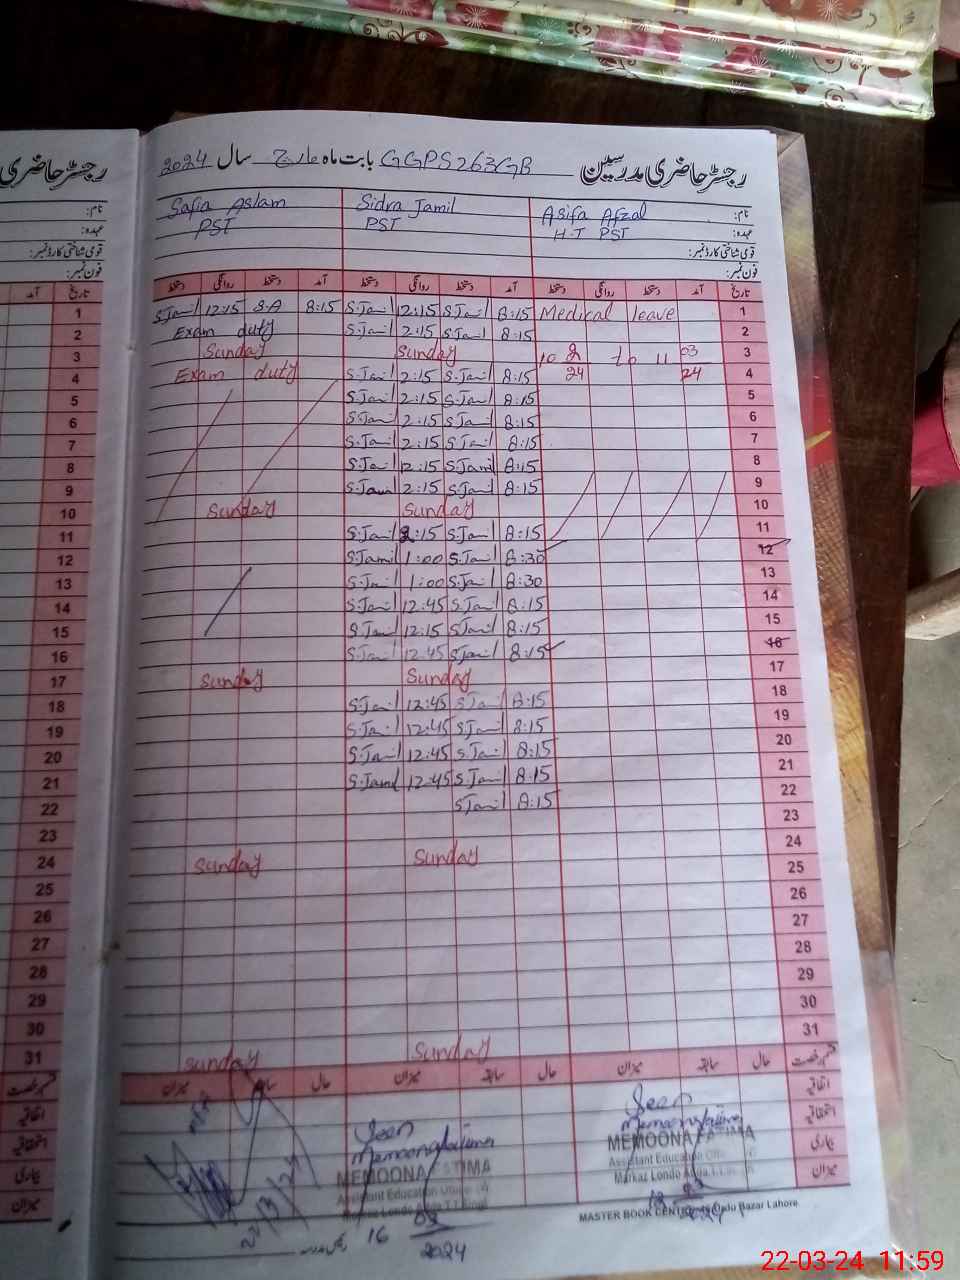 رجسٹر حاضری مدرسین GGPS 263 GB بابت ماہ مارچ سال 2024
نام: Asifa Afzal Sidra Jamil Safia Aslam
عہدہ: H.T PST PST PST
قومی شناختی کارڈ نمبر:
فون نمبر:
تاریخ آمد دستخط روانگی دستخط آمد دستخط روانگی دستخط آمد دستخط روانگی دستخط
S.Jamil 12:15 S.A 8:15 S.Jamil 12:15 S.Jamil 8:15 Medical leave 1
Exam duty S.Jamil 2:15 S.Jamil 8:15 2
Sunday Sunday 10 2/24 to 11 03/24 3
Exam duty S.Jamil 2:15 S.Jamil 8:15 4
S.Jamil 2:15 S.Jamil 8:15 5
S.Jamil 2:15 S.Jamil 8:15 6
S.Jamil 2:15 S.Jamil 8:15 7
S.Jamil 12:15 S.Jamil 8:15 8
S.Jamil 2:15 S.Jamil 8:15 9
Sunday Sunday 10
S.Jamil 2:15 S.Jamil 8:15 11
S.Jamil 1:00 S.Jamil 8:30 12
S.Jamil 1:00 S.Jamil 8:30 13
S.Jamil 12:45 S.Jamil 8:15 14
S.Jamil 12:15 S.Jamil 8:15 15
S.Jamil 12:45 S.Jamil 8:15 16
Sunday Sunday 17
S.Jamil 12:45 S.Jamil 8:15 18
S.Jamil 12:45 S.Jamil 8:15 19
S.Jamil 12:45 S.Jamil 8:15 20
S.Jamil 12:45 S.Jamil 8:15 21
S.Jamil 8:15 22
23
Sunday Sunday 24
25
26
27
28
29
30
Sunday Sunday 31
حال سابقہ میزان حال سابقہ میزان حال سابقہ میزان
اتفاقیہ
استحقاقیہ
بیماری
میزان
Seen
Memoona Fatima
MEMOONA FATIMA
Assistant Education
Markaz Londo
Seen
Memoona Fatima
MEMOONA FATIMA
Assistant Education
16 03/2024
22/3/24
MASTER BOOK CENTRE Urdu Bazar Lahore
22-03-24 11:59